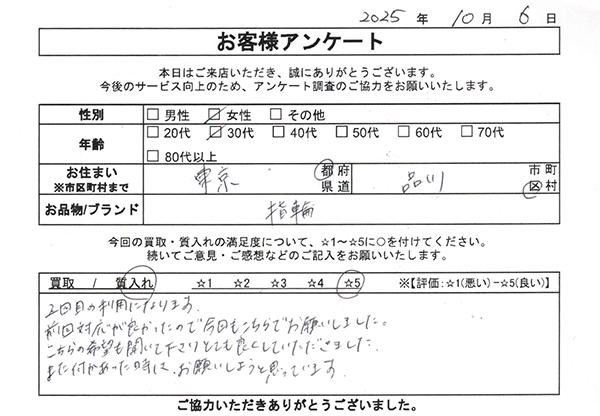 2025 年 10 月 6 日
お客様アンケート
本日はご来店いただき、誠にありがとうございます。
今後のサービス向上のため、アンケート調査のご協力をお願いいたします。
性別 □ 男性 ☑ 女性 □ その他
年齢 □ 20代 ☑ 30代 □ 40代 □ 50代 □ 60代 □ 70代
□ 80代以上
お住まい ※市区町村まで 東京 都府県道 品川 市町区村
お品物/ブランド 指輪
今回の買取・質入れの満足度について、☆1～☆5に○を付けてください。
続いてご意見・ご感想などのご記入をお願いいたします。
買取 / 質入れ ☆1 ☆2 ☆3 ☆4 ☆5 ※【評価:☆1(悪い)－☆5(良い)】
2回目の利用になります。
前回対応が良かったので今回もこちらでお願いしました。
こちらの希望も聞いて下さりとても良くしていただきました。
また何かあった時は、お願いしようと思っています。
ご協力いただきありがとうございました。